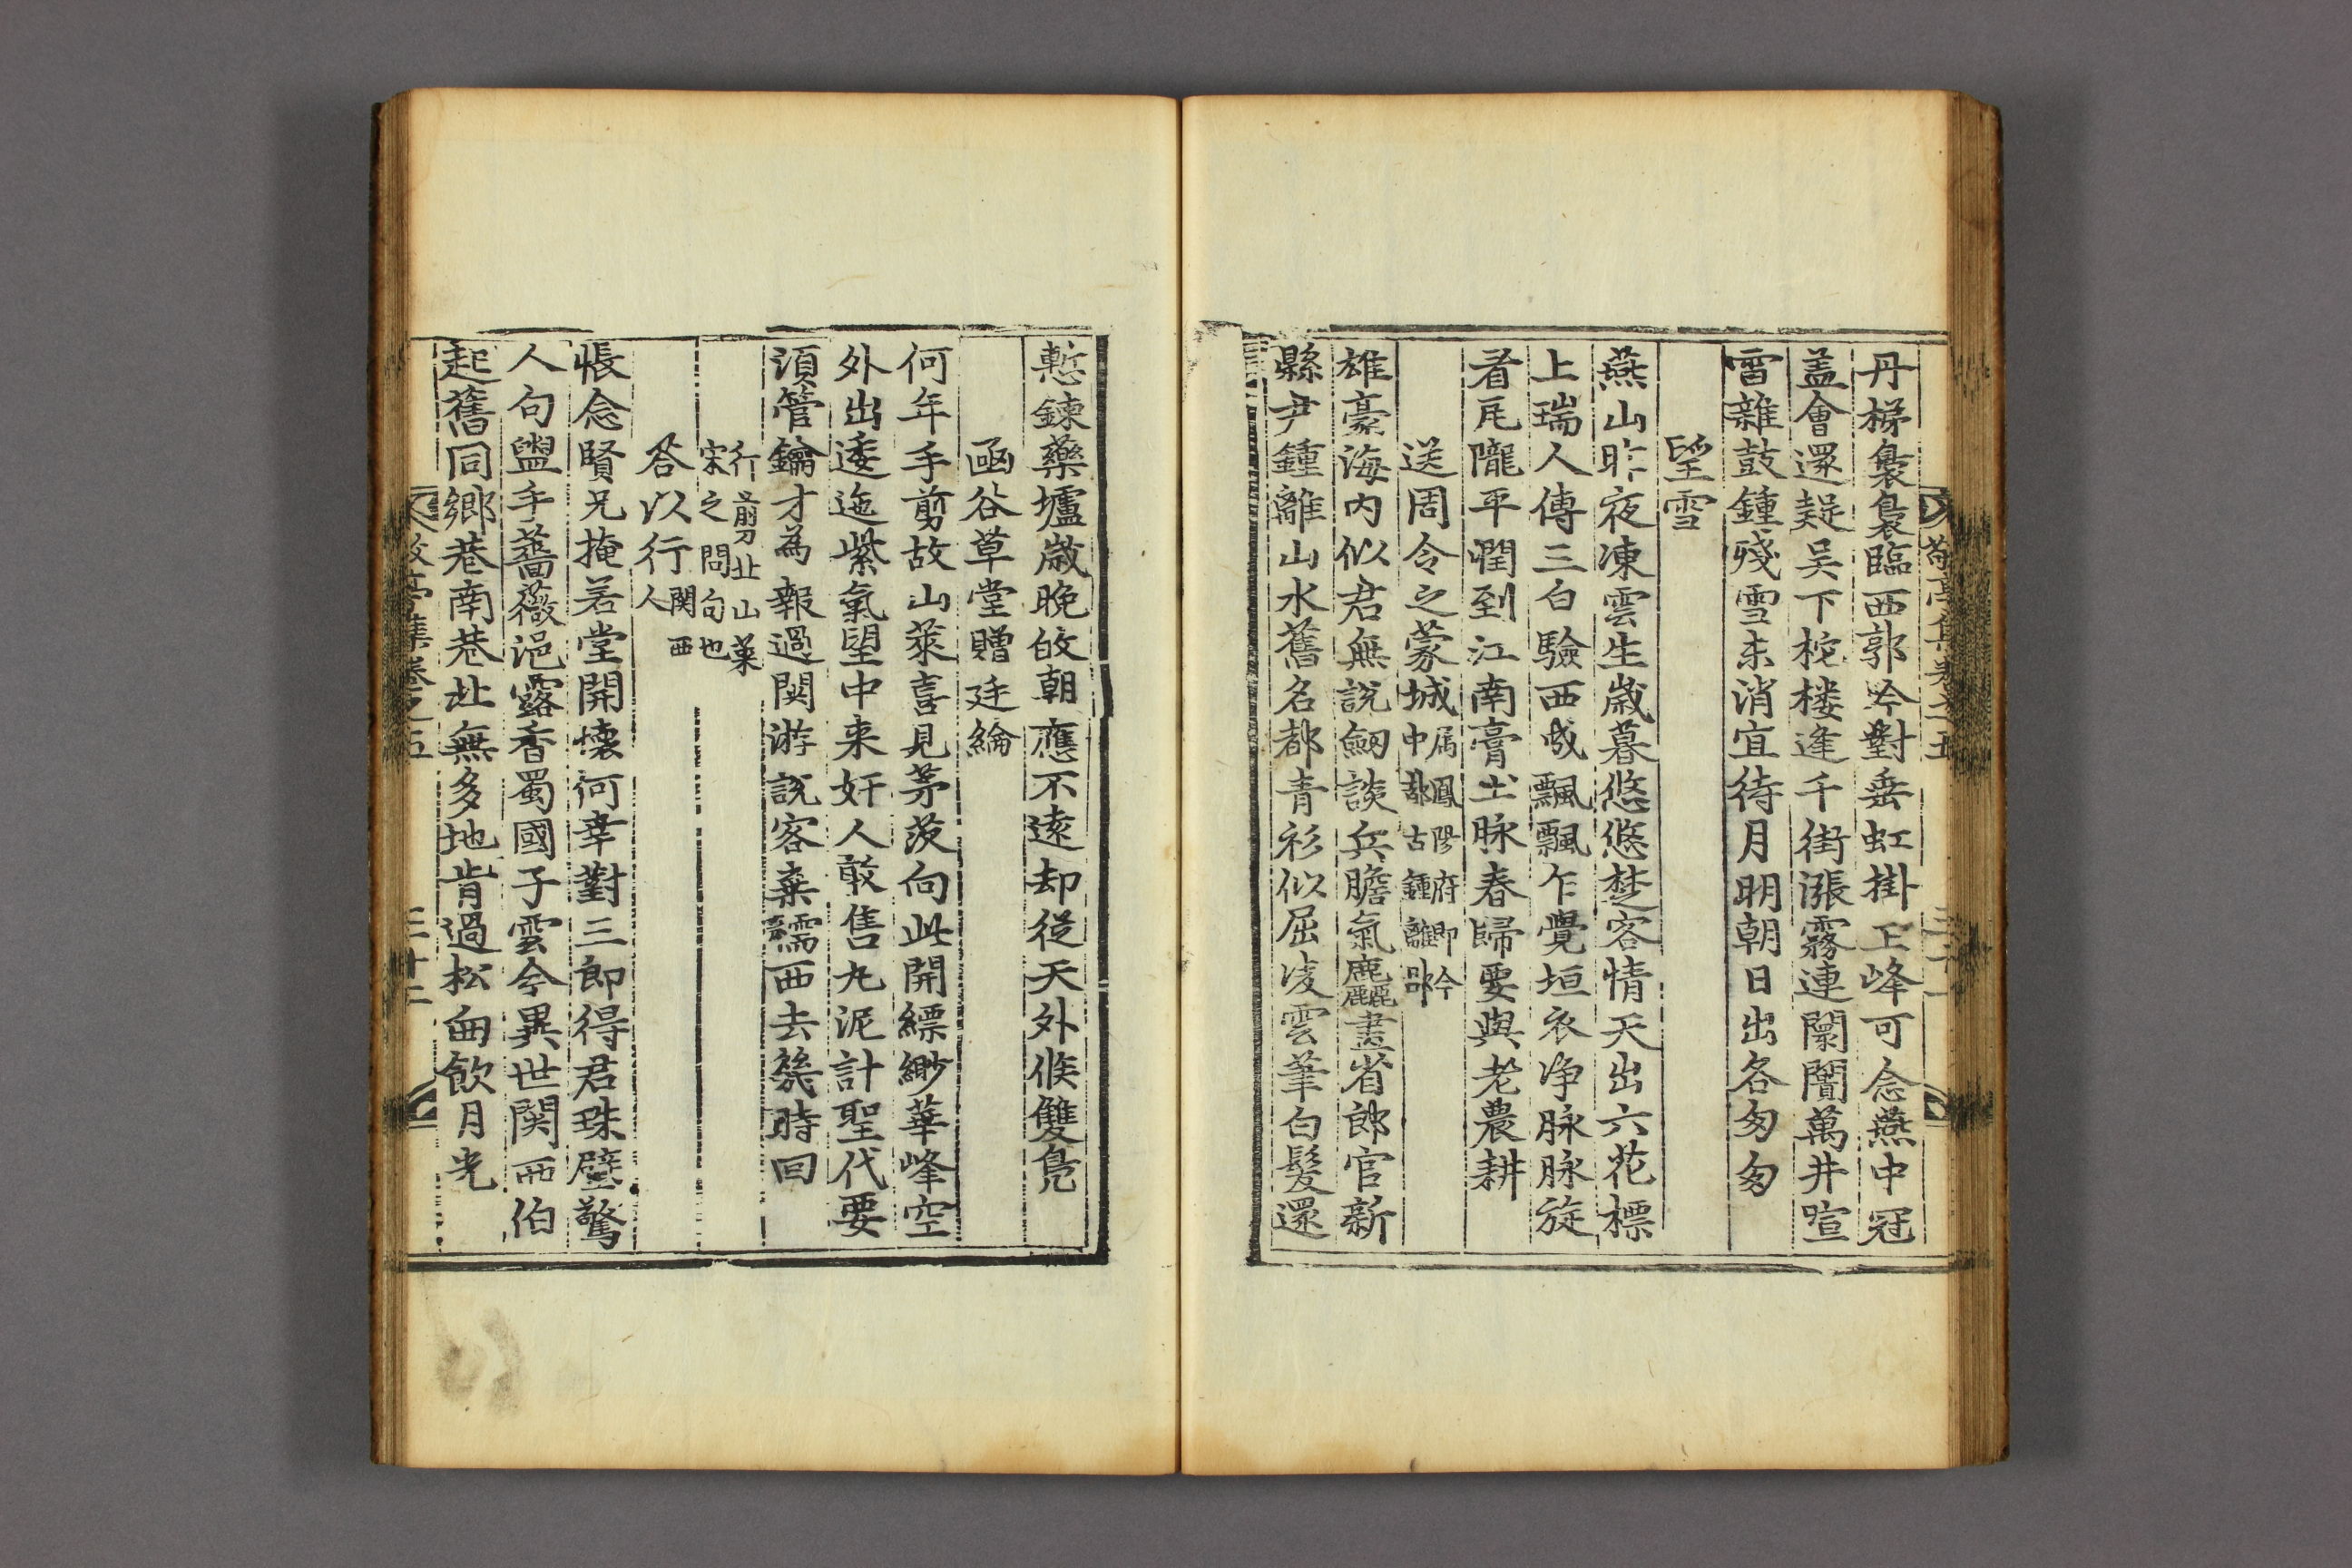 敬亭集卷之五
丹梯裊裊臨西郭吟對垂虹掛上峰可念燕中冠
盖會還疑吴下梲楼逢千街漲霧連闤闠萬井喧
雷雜鼓鍾殘雪未消宜待月明朝日出各匆匆
望雪
燕山昨夜凍雲生歲暮悠悠楚客情天出六花標
上瑞人傳三白驗西成飄飄乍覺垣衣净脉脉旋
看瓦隴平潤到江南膏土脉春歸要與老農耕
送周令之蒙城中属鳳陽府即今都古鍾離郡
雄豪海内似君無說劒談兵膽氣麤畫省郎官新
縣尹鍾離山水舊名都青衫似屈凌雲筆白髮還
慙鍊藥壚歲晚故朝應不遠却從天外候雙鳬
凾谷草堂贈廷綸
何年手剪故山萊喜見茅茨向此開縹緲華峰空
外出逶迤紫氣望中来奸人敢售丸泥計聖代要
湏管鑰才為報過関游說客棄繻西去幾時回
行且剪北山萊
宋之問句也
答以行人関西
悵念賢兄掩若堂開懐何幸對三郎得君珠璧驚
人句盥手薔薇浥露香蜀國子雲今異世関西伯
起舊同鄉巷南巷北無多地肯過松㽞飲月光
敬亭集卷之五
三十二